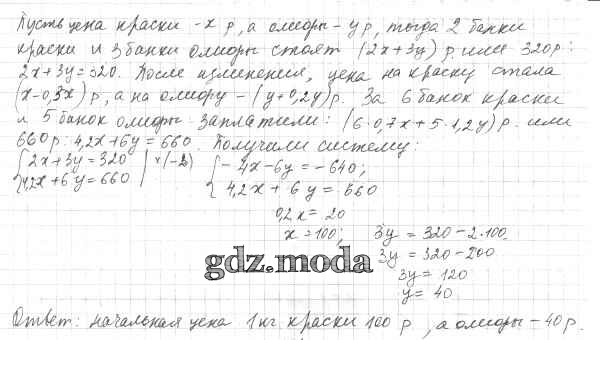 Пусть цена краски - x р, а олифы - y р, тогда 2 банки
краски и 3 банки олифы стоят (2x+3y) р. или 320р:
2x+3y=320. После изменения, цена на краску стала
(x-0,3x) р, а на олифу - (y+0,2y)р. За 6 банок краски
и 5 банок олифы заплатили: (6·0,7x+5·1,2y) р. или
660р: 4,2x+6y=660. Получили систему:
{2x+3y=320 | ×(-2) {-4x-6y=-640;
4,2x+6y=660 4,2x+6y=660
0,2x=20
x=100; 3y=320-2·100
3y=320-200
gdz.moda
3y=120
y=40
Ответ: начальная цена 1кг краски 100 р, а олифы - 40р.